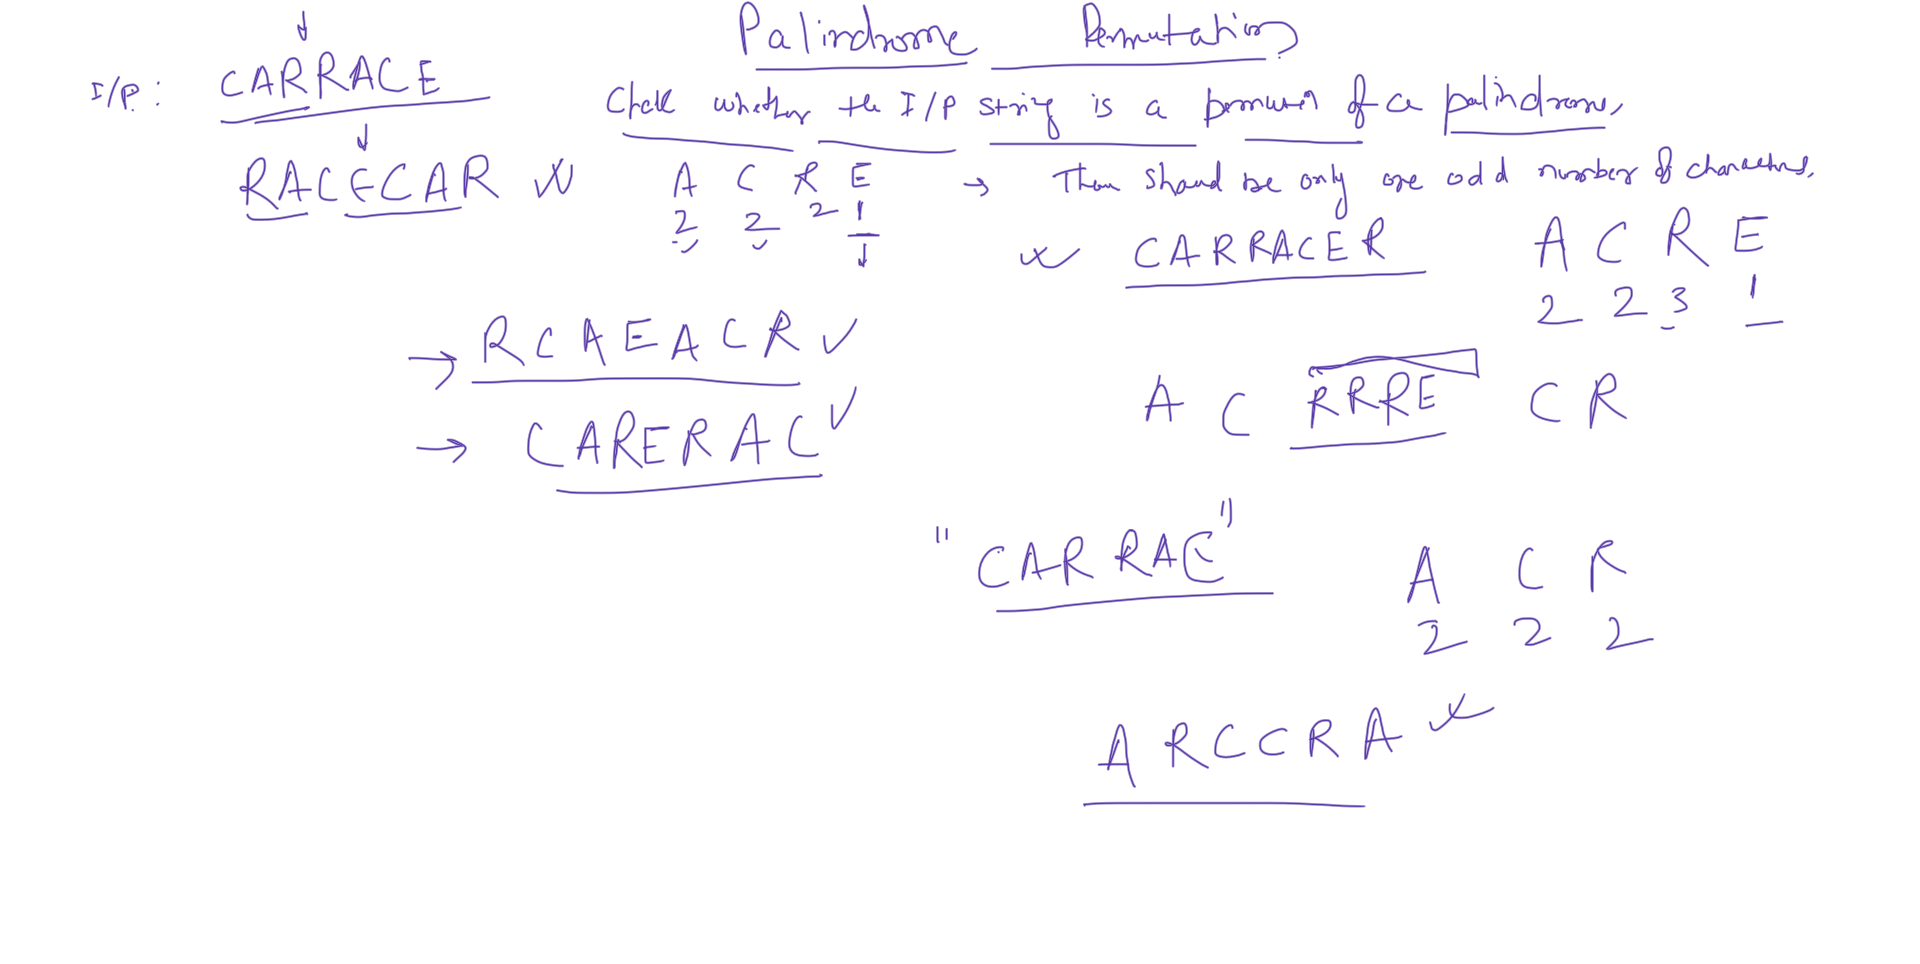 Palindrome Permutation
I/P: CARRACE
Check whether the I/P string is a permutn of a palindrome,
RACECAR
A C R E
2 2 2 1
→ There should be only one odd number of characters.
CARRACER
A C R E
2 2 3 1
→ RCAEACR ✓
→ CARERAC ✓
A C RRRE C R
"CARRAC"
A C R
2 2 2
ARCCRA